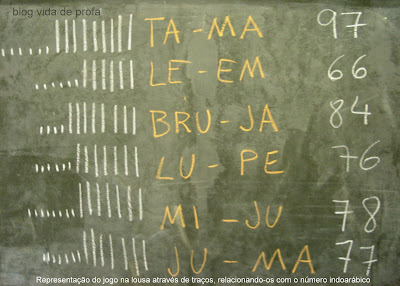 blog vida de profa
TA-MA 97
LE-EM 66
BRU-JA 84
LU-PE 76
MI-JU 78
JU-MA 77
Representação do jogo na lousa através de traços, relacionando-os com o número indoarábico